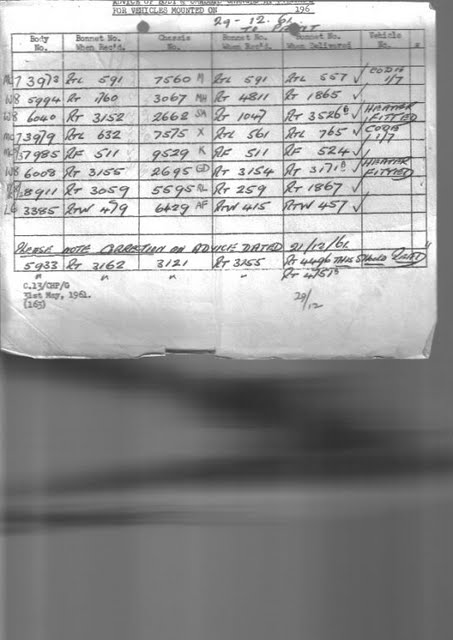 ADVICE OF BODY & CHASSIS
FOR VEHICLES MOUNTED ON 29-12-61 196
Body No. Bonnet No. When Rec'd. Chassis No. Bonnet No. When Rec'd. Bonnet No. When Delivered Vehicle No.
7 3973 RTL 591 7560 M RTL 591 RTL 557 ✓ 1/7
W8 5994 RT 760 3067 MH RT 4811 RT 1865 ✓
W8 6040 RT 3152 2662 SM RT 1047 RT 3526 B ✓ HEATER FITTED
7 3979 RTL 632 7575 X RTL 561 RTL 765 ✓ 1/7
7985 RF 511 9529 K RF 511 RF 524 ✓
W8 6008 RT 3155 2695 GD RT 3154 RT 3171 B ✓ HEATER FITTED
8911 RT 3059 5595 AL RT 259 RT 1867 ✓
L6 3385 RTW 479 6429 AF RTW 415 RTW 457 ✓
PLEASE NOTE CORRECTION ON ADVICE DATED 21/12/61
5933 RT 3162 3121 RT 3155 RT 4496 THIS SHOULD READ
" " " " RT
C.13/CHF/O
31st May, 1961.
(163)
29/12